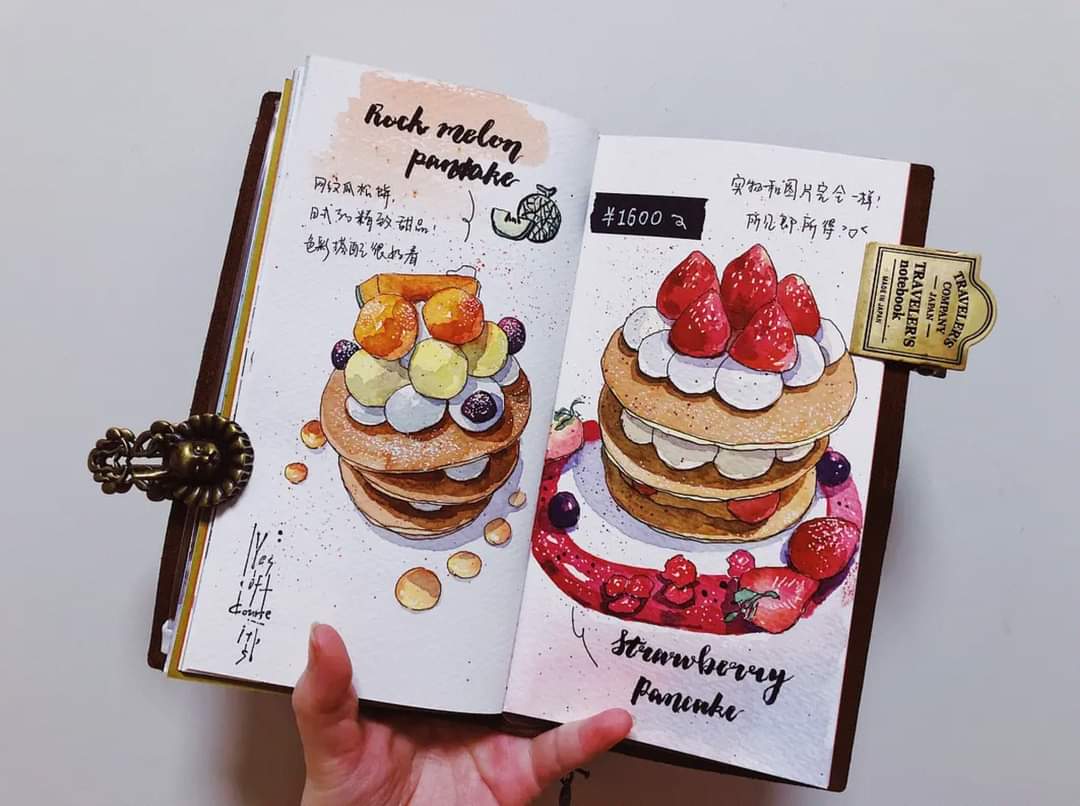 Rock melon
pancake
网纹瓜松饼,
日式的精致甜品!
色彩搭配很好看
Yes
of
Course
it's
实物和图片完全一样!
所见即所得
¥1600
Strawberry
Pancake
TRAVELER'S
COMPANY
— JAPAN —
TRAVELER'S
notebook
MADE IN JAPAN